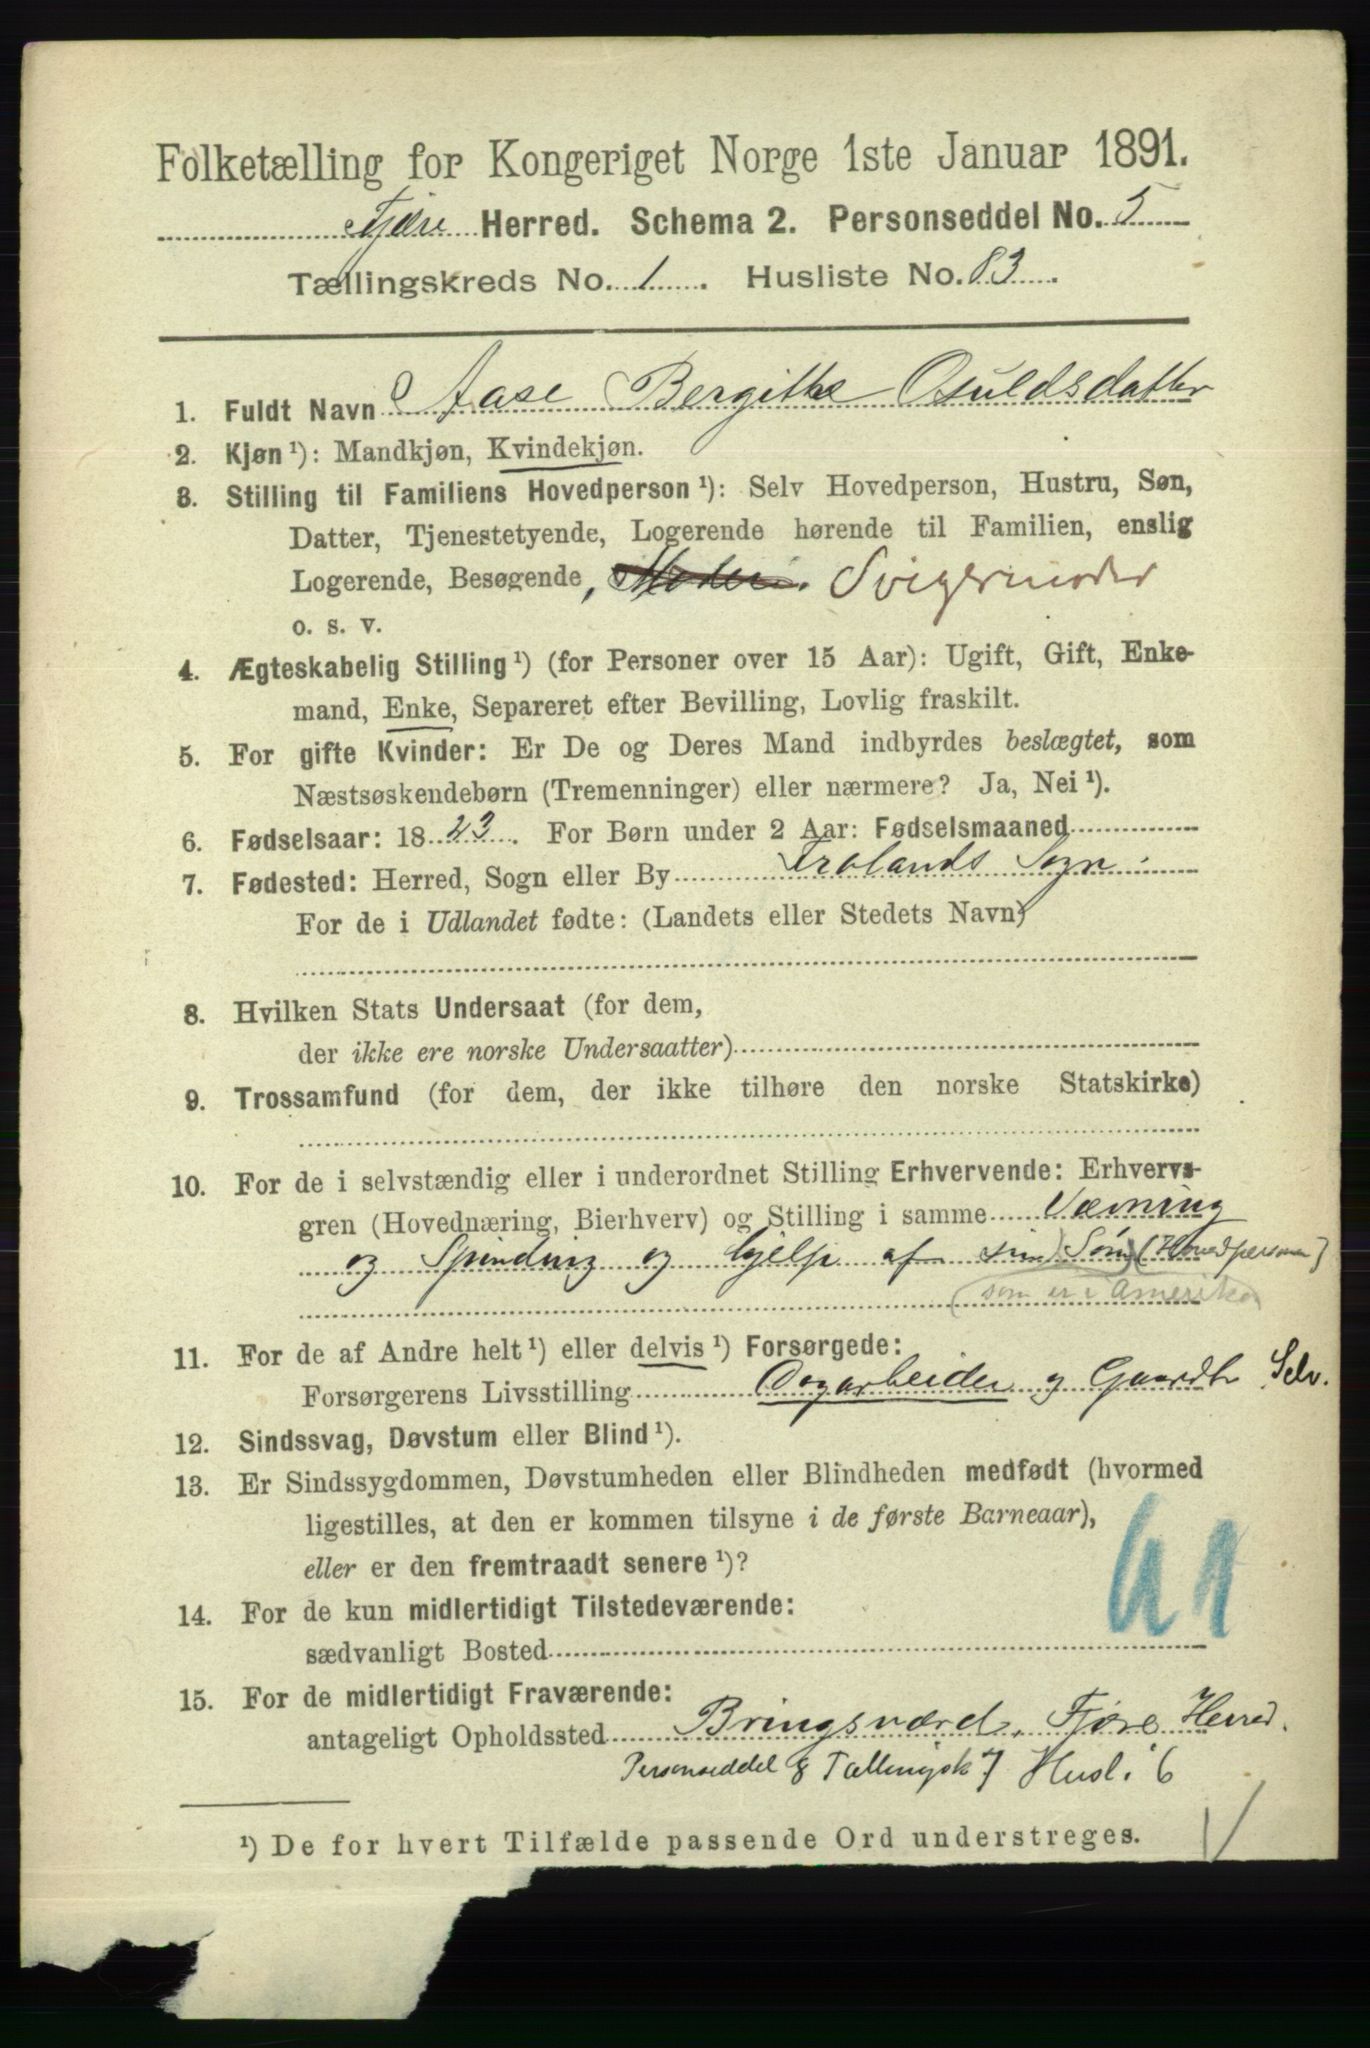 Folketælling for Kongeriget Norge 1ste Januar 1891.
Fjære Herred. Schema 2. Personseddel No. 5
Tællingskreds No. 1. Husliste No. 83.
1. Fuldt Navn Aase Bergithe Osuldsdatter
2. Kjøn ¹): Mandkjøn, Kvindekjøn.
3. Stilling til Familiens Hovedperson ¹): Selv Hovedperson, Hustru, Søn,
Datter, Tjenestetyende, Logerende hørende til Familien, enslig
Logerende, Besøgende, Moder. Svigermoder
o. s. v.
4. Ægteskabelig Stilling ¹) (for Personer over 15 Aar): Ugift, Gift, Enke-
mand, Enke, Separeret efter Bevilling, Lovlig fraskilt.
5. For gifte Kvinder: Er De og Deres Mand indbyrdes beslægtet, som
Næstsøskendebørn (Tremenninger) eller nærmere? Ja, Nei ¹).
6. Fødselsaar: 1823. For Børn under 2 Aar: Fødselsmaaned
7. Fødested: Herred, Sogn eller By Frolands Sogn.
For de i Udlandet fødte: (Landets eller Stedets Navn)
8. Hvilken Stats Undersaat (for dem,
der ikke ere norske Undersaatter)
9. Trossamfund (for dem, der ikke tilhøre den norske Statskirke)
10. For de i selvstændig eller i underordnet Stilling Erhvervende: Erhvervs-
gren (Hovednæring, Bierhverv) og Stilling i samme Vævning
og Spinding og hjelp af sin Søn (Hovedpersonen)
(som er i Amerika)
11. For de af Andre helt ¹) eller delvis ¹) Forsørgede:
Forsørgerens Livsstilling Dagarbeider og Gaardbr Selv.
12. Sindssvag, Døvstum eller Blind ¹).
13. Er Sindssygdommen, Døvstumheden eller Blindheden medfødt (hvormed
ligestilles, at den er kommen tilsyne i de første Barneaar),
eller er den fremtraadt senere ¹)?
14. For de kun midlertidigt Tilstedeværende:
sædvanligt Bosted
15. For de midlertidigt Fraværende:
antageligt Opholdssted Bringsværd, Fjøre Herred.
Personseddel 8 Tællingsk 7 Husl. 6
¹) De for hvert Tilfælde passende Ord understreges.